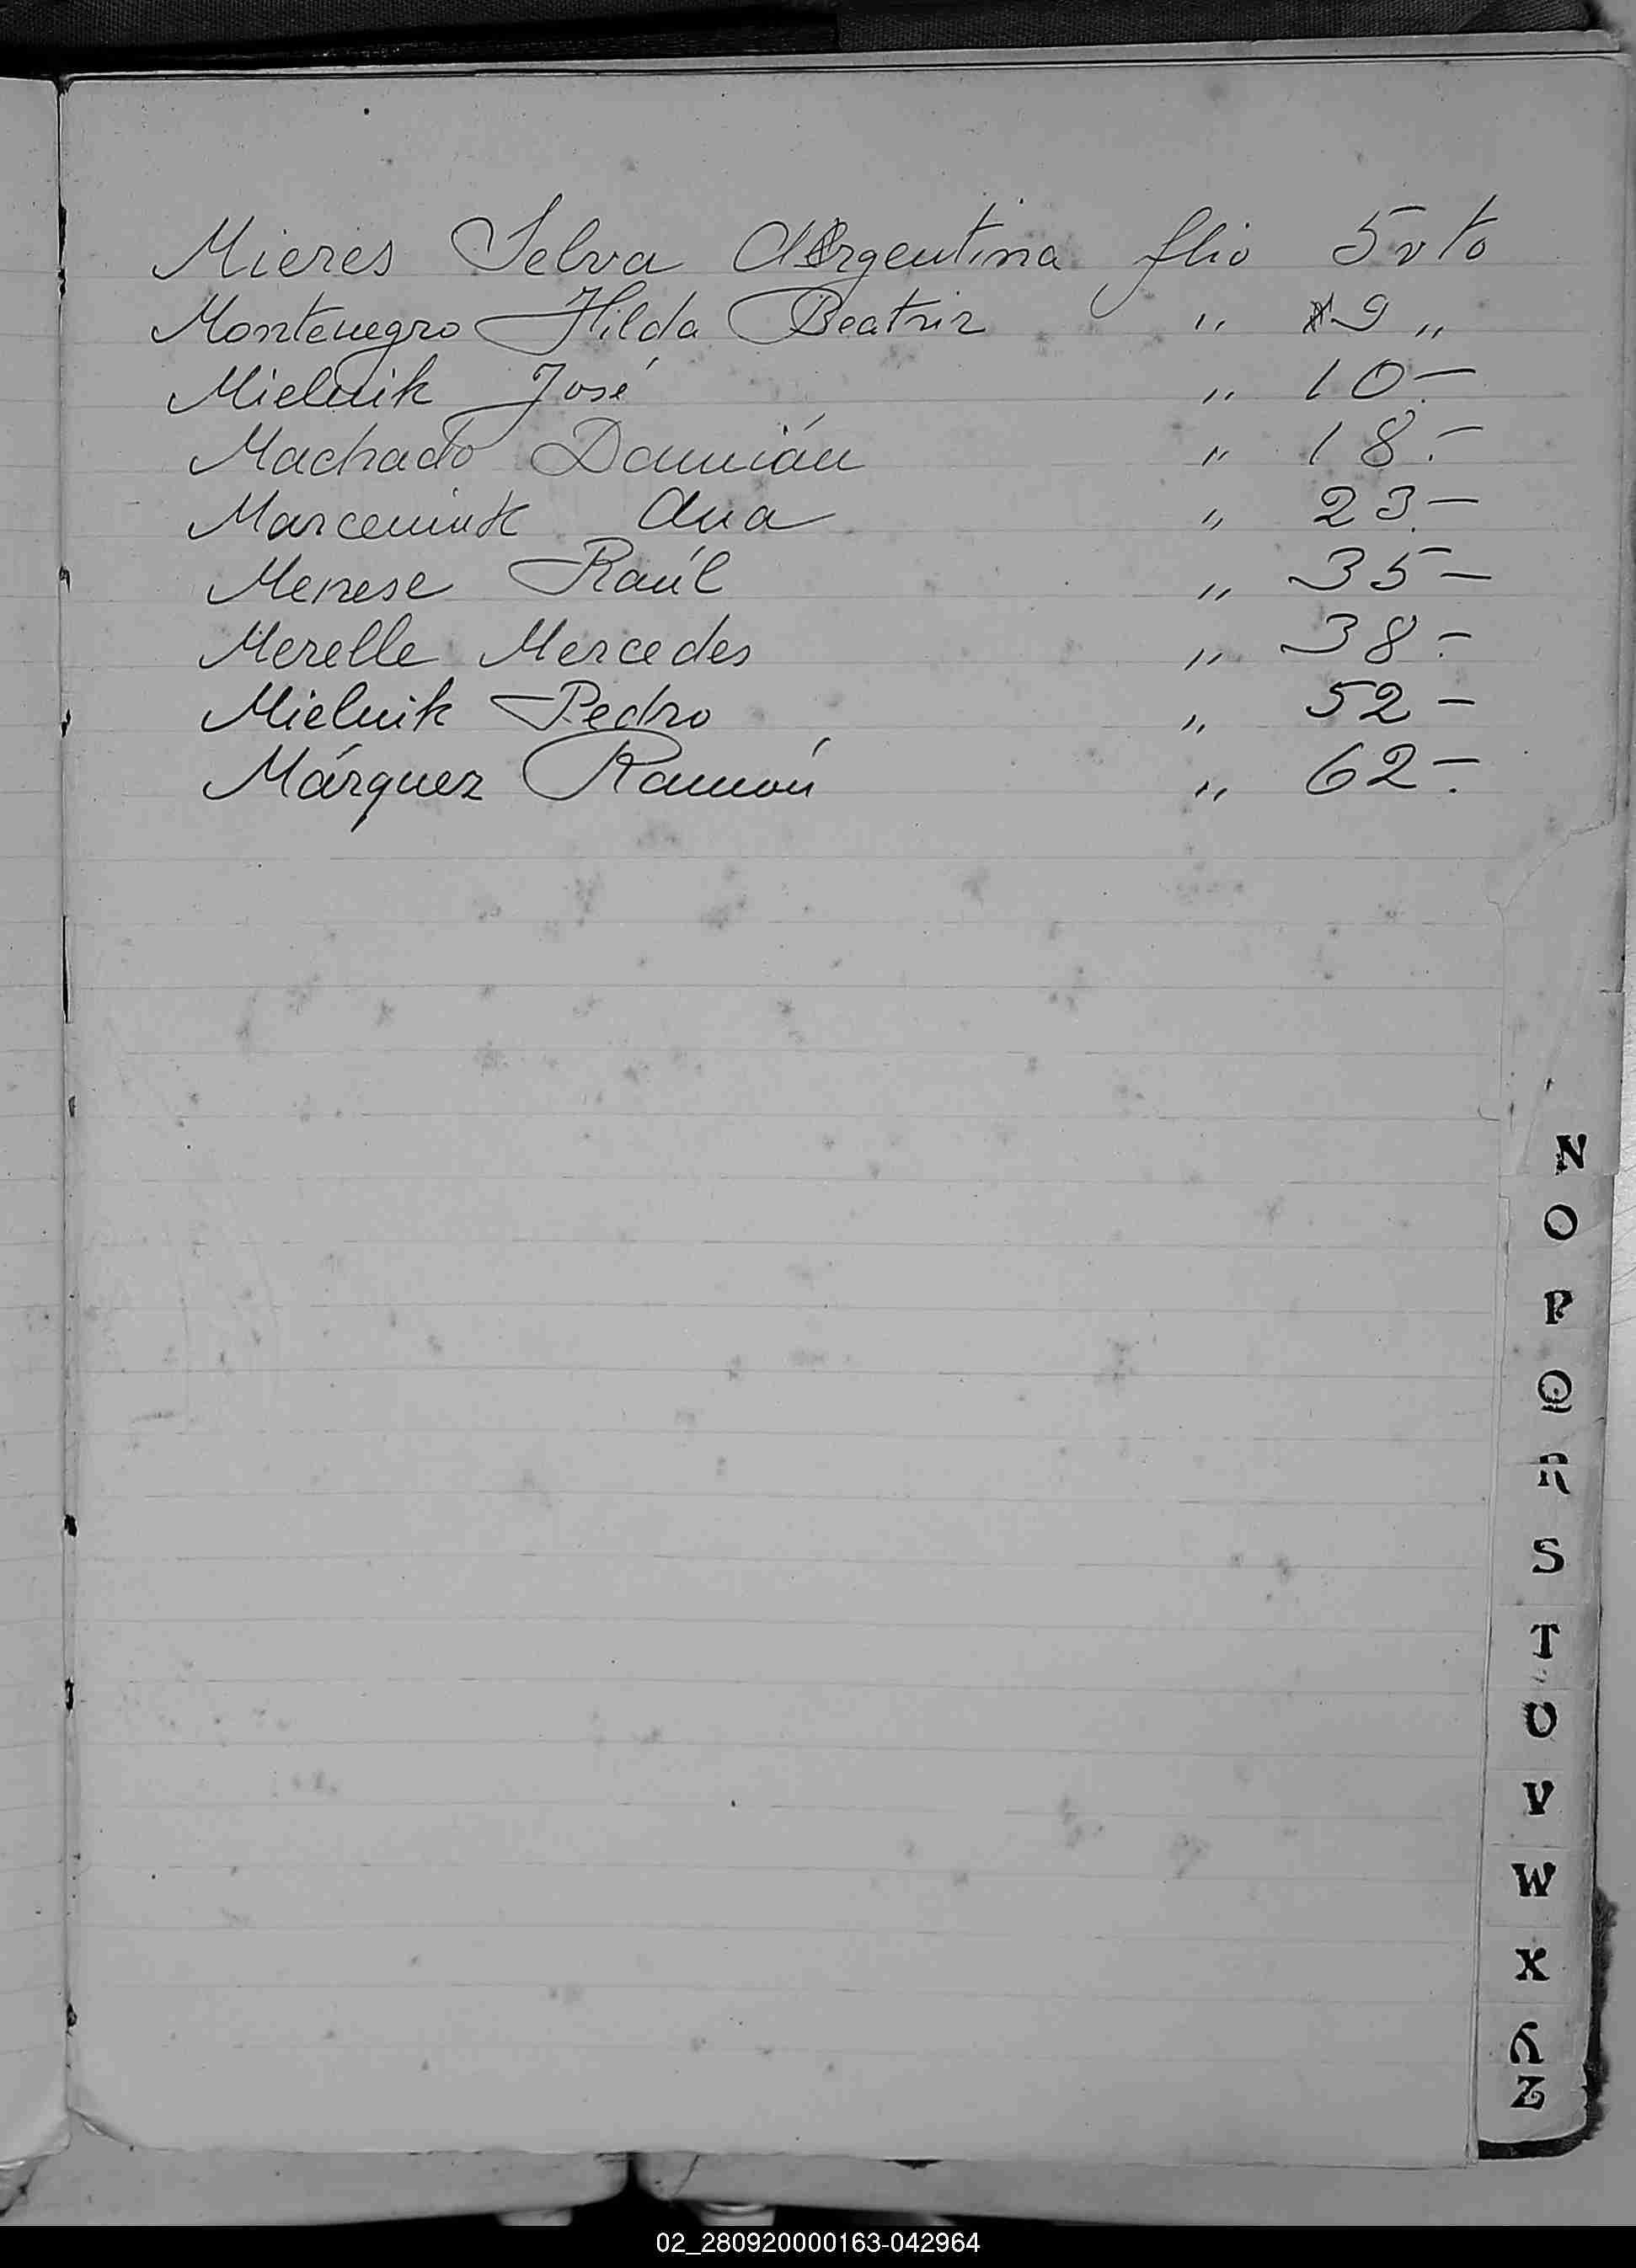 Mieres Selva Argentina flio 5 vto
Montenegro Hilda Beatriz " 9 "
Mielnik José " 10.-
Machado Damián " 18.-
Marceniuk Ana " 23.-
Menese Raúl " 35-
Merelle Mercedes " 38.-
Mielnik Pedro " 52-
Márquez Ramón " 62.-
N
O
P
Q
R
S
T
U
V
W
X
Y
Z
02_280920000163-042964